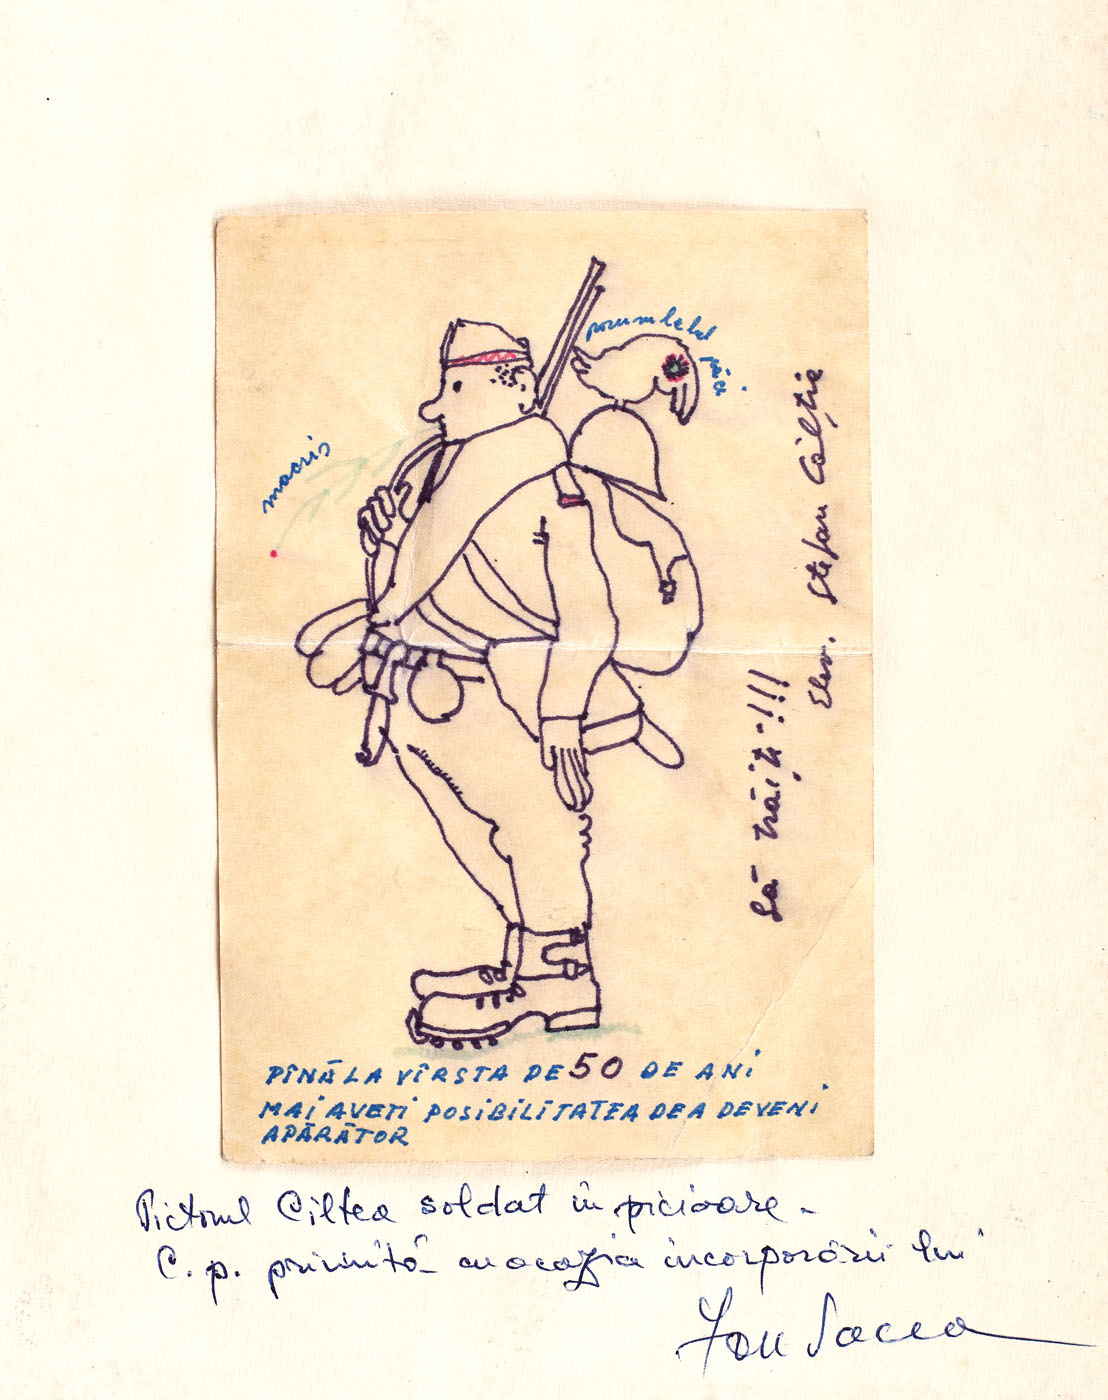 porumbelul
păcii
macris
Elev. Ștefan Câlția
Să trăiți!!!
PÎNĂ LA VÎRSTA DE 50 DE ANI
MAI AVETI POSIBILITATEA DE A DEVENI
APĂRĂTOR
Pictorul Cîlția soldat în picioare.
C.p. primită cu ocazia incorporării lui
Ion Sacea